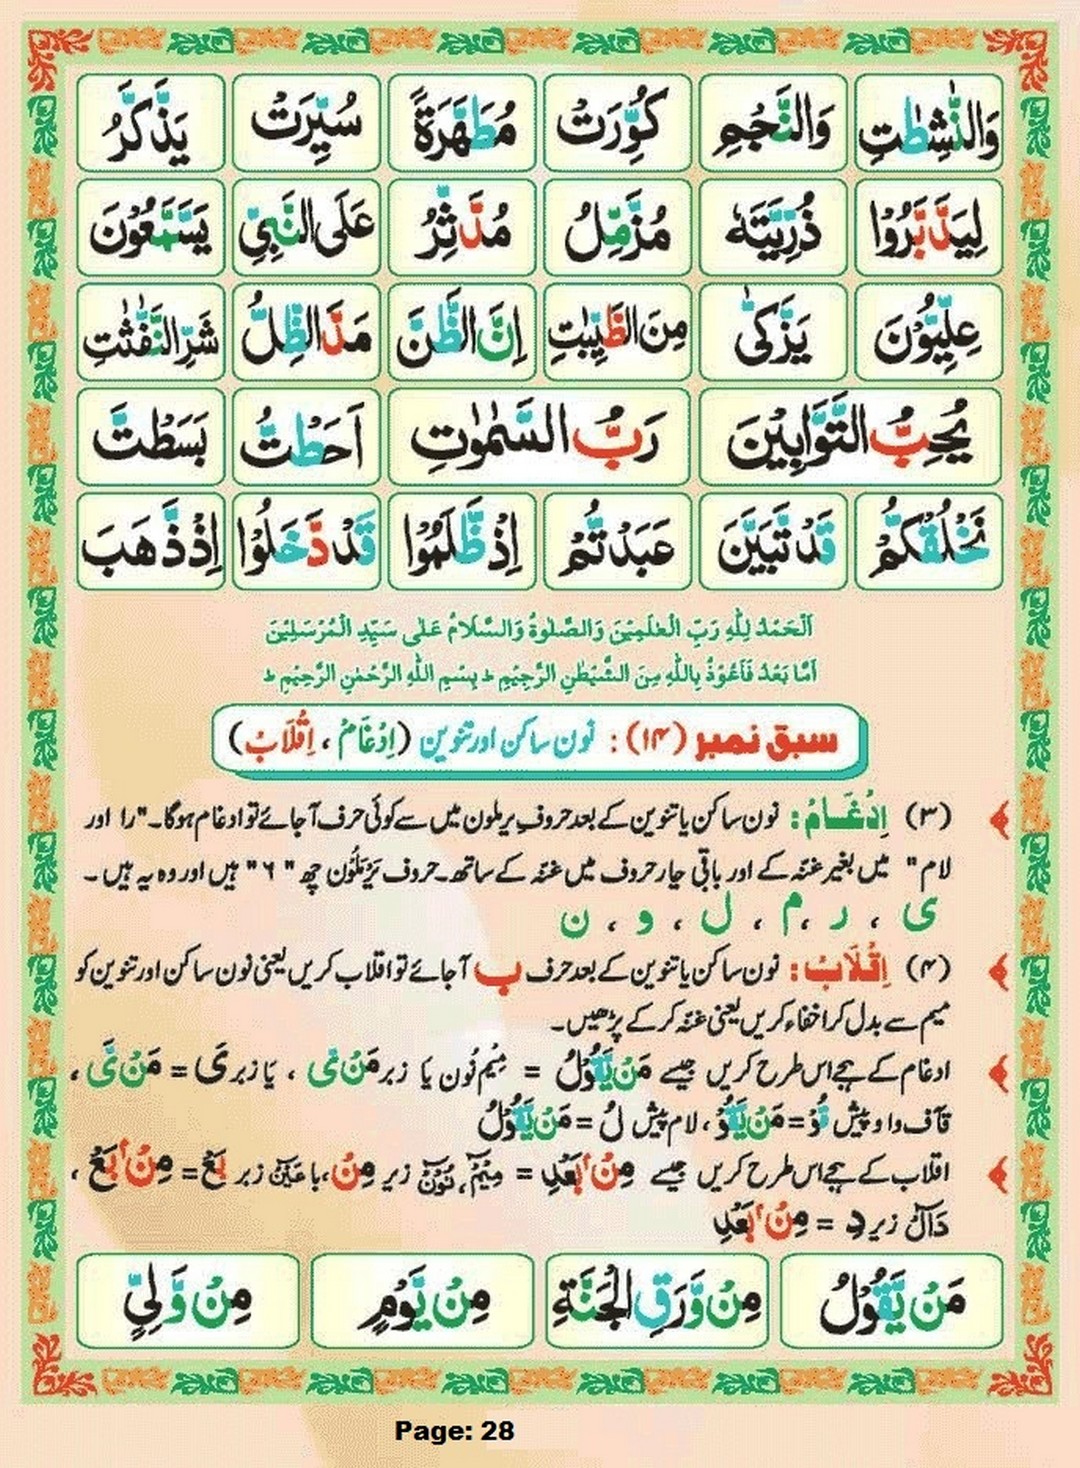 وَالنّٰشِطٰتِ وَالنَّجْمِ كُوِّرَتْ مُطَهَّرَةً سُيِّرَتْ يَذَّكَّرُ
لِيَدَّبَّرُوْا ذُرِّيَّتَهٗ مُزَّمِّلُ مُدَّثِّرُ عَلَى النَّبِيِّ يَسَّمَّعُوْنَ
عِلِّيُّوْنَ يَزَّكّٰى مِنَ الطَّيِّبٰتِ اِنَّ الظَّنَّ مَدَّ الظِّلَّ شَرِّ النَّفّٰثٰتِ
يُحِبُّ التَّوَّابِيْنَ رَبُّ السَّمٰوٰتِ اَحَطْتُّ بَسَطْتَّ
نَخْلُقْكُّمْ قَدْ تَّبَيَّنَ عَبَدْتُّمْ اِذْ ظَّلَمُوْا قَدْ دَّخَلُوْا اِذْ ذَّهَبَ
اَلْحَمْدُ لِلّٰهِ رَبِّ الْعٰلَمِيْنَ وَالصَّلٰوةُ وَالسَّلَامُ عَلٰى سَيِّدِ الْمُرْسَلِيْنَ
اَمَّا بَعْدُ فَاَعُوْذُ بِاللّٰهِ مِنَ الشَّيْطٰنِ الرَّجِيْمِ ط بِسْمِ اللّٰهِ الرَّحْمٰنِ الرَّحِيْمِ ط
سبق نمبر (۱۴) : نون ساکن اور تنوین (اِدْغَامْ ، اِقْلَابْ)
(۳) اِدْغَامْ : نون ساکن یا تنوین کے بعد حروفِ یرملون میں سے کوئی حرف آجائے تو ادغام ہوگا۔ "را اور
لام" میں بغیر غنّہ کے اور باقی چار حروف میں غنّہ کے ساتھ۔ حروف یَرْمَلُوْن چھ "۶" ہیں اور وہ یہ ہیں ۔
ی ، ر ، م ، ل ، و ، ن
(۴) اِقْلَابْ : نون ساکن یا تنوین کے بعد حرف ب آجائے تو اقلاب کریں یعنی نون ساکن اور تنوین کو
میم سے بدل کر اخفاء کریں یعنی غنّہ کر کے پڑھیں۔
ادغام کے ہجے اس طرح کریں جیسے مَنْ يَّقُوْلُ = مِیْم نُون یا زبر مَنْ يَّ ، یا زبر یَ = مَنْ يَّ ،
قاف واو پیش قُوْ = مَنْ يَّقُوْ ، لام پیش لُ = مَنْ يَّقُوْلُ
اقلاب کے ہجے اس طرح کریں جیسے مِنْۢ بَعْدِ = مِیْمْ ، نُوْنْ زیر مِنْ ، با عَیْنْ زبر بَعْ = مِنْۢ بَعْ ،
دَالْ زیر دِ = مِنْۢ بَعْدِ
مَنْ يَّقُوْلُ مِنْ وَّرَقِ الْجَنَّةِ مِنْ يَّوْمٍ مِنْ وَّلِيٍّ
Page: 28